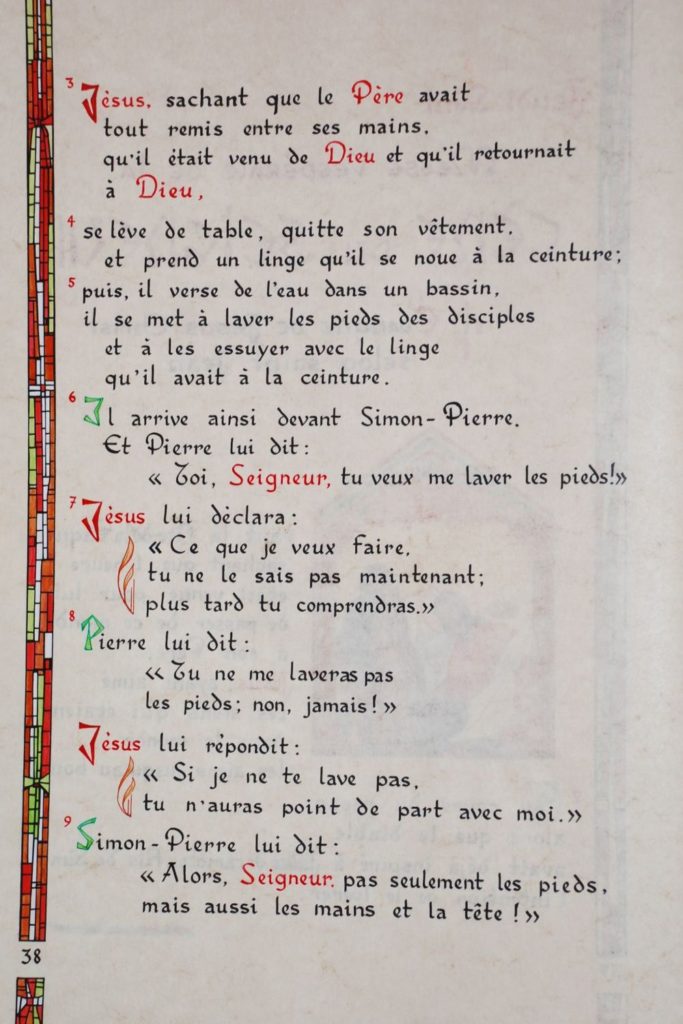 3 Jésus, sachant que le Père avait
tout remis entre ses mains,
qu'il était venu de Dieu et qu'il retournait
à Dieu,
4 se lève de table, quitte son vêtement,
et prend un linge qu'il se noue à la ceinture;
5 puis, il verse de l'eau dans un bassin,
il se met à laver les pieds des disciples
et à les essuyer avec le linge
qu'il avait à la ceinture.
6 Il arrive ainsi devant Simon-Pierre.
Et Pierre lui dit:
« Toi, Seigneur, tu veux me laver les pieds!»
7 Jésus lui déclara:
« Ce que je veux faire,
tu ne le sais pas maintenant;
plus tard tu comprendras.»
8 Pierre lui dit:
« Tu ne me laveras pas
les pieds; non, jamais!»
Jésus lui répondit:
« Si je ne te lave pas,
tu n'auras point de part avec moi.»
9 Simon-Pierre lui dit:
« Alors, Seigneur, pas seulement les pieds,
mais aussi les mains et la tête!»
38